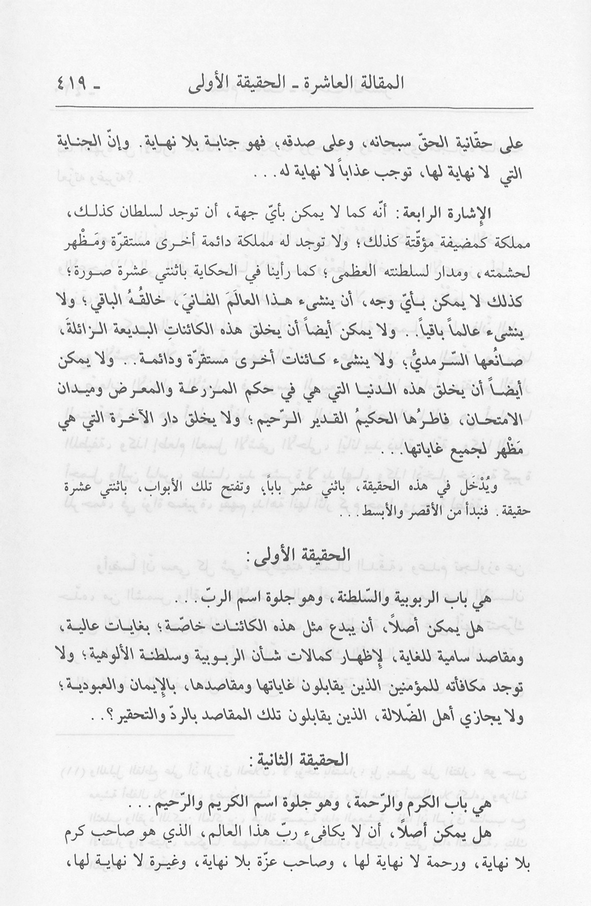 المقالة العاشرة ـ الحقيقة الأولى ـ ٤١٩
على حقّانية الحقّ سبحانه، وعلى صدقه، فهو جناية بلا نهاية. وإنّ الجناية
التي لا نهاية لها، توجب عذاباً لا نهاية له...
الإشارة الرابعة: أنّه كما لا يمكن بأيّ جهة، أن توجد لسلطان كذلك،
مملكة كمضيفة مؤقّتة كذلك؛ ولا توجد له مملكة دائمة أخرى مستقرّة ومَظْهر
لحشمته، ومدار لسلطنته العظمى؛ كما رأينا في الحكاية باثنتي عشرة صورة؛
كذلك لا يمكن بأيّ وجه، أن ينشىء هذا العالَمَ الفانيَ، خالقُهُ الباقي؛ ولا
ينشىء عالماً باقياً.. ولا يمكن أيضاً أن يخلق هذه الكائناتِ البديعة الزائلةَ،
صانُعها السّرمديُّ؛ ولا ينشىء كائنات أخرى مستقرّة ودائمة.. ولا يمكن
أيضاً أن يخلق هذه الدنيا التي هي في حكم المزرعة والمعرض وميدان
الامتحان، فاطرُها الحكيمُ القدير الرّحيم؛ ولا يخلق دار الآخرة التي هي
مَظْهر لجميع غاياتها...
ويُدْخل في هذه الحقيقة، باثني عشر باباً، وتفتح تلك الأبواب، باثنتي عشرة
حقيقة. فنبدأ من الأقصر والأبسط...
الحقيقة الأولى:
هي باب الربوبية والسّلطنة، وهو جلوة اسم الربّ...
هل يمكن أصلاً، أن يبدع مثل هذه الكائنات خاصّة؛ بغايات عالية،
ومقاصد سامية للغاية، لإظهار كمالات شأن الربوبية وسلطنة الألوهية؛ ولا
توجد مكافأته للمؤمنين الذين يقابلون غاياتها ومقاصدها، بالإيمان والعبودية؛
ولا يجازي أهل الضّلالة، الذين يقابلون تلك المقاصد بالردّ والتحقير؟..
الحقيقة الثانية:
هي باب الكرم والرّحمة، وهو جلوة اسم الكريم والرّحيم...
هل يمكن أصلاً، أن لا يكافىء ربّ هذا العالم، الذي هو صاحب كرم
بلا نهاية، ورحمة لا نهاية لها، وصاحب عزّة بلا نهاية، وغيرة لا نهاية لها،